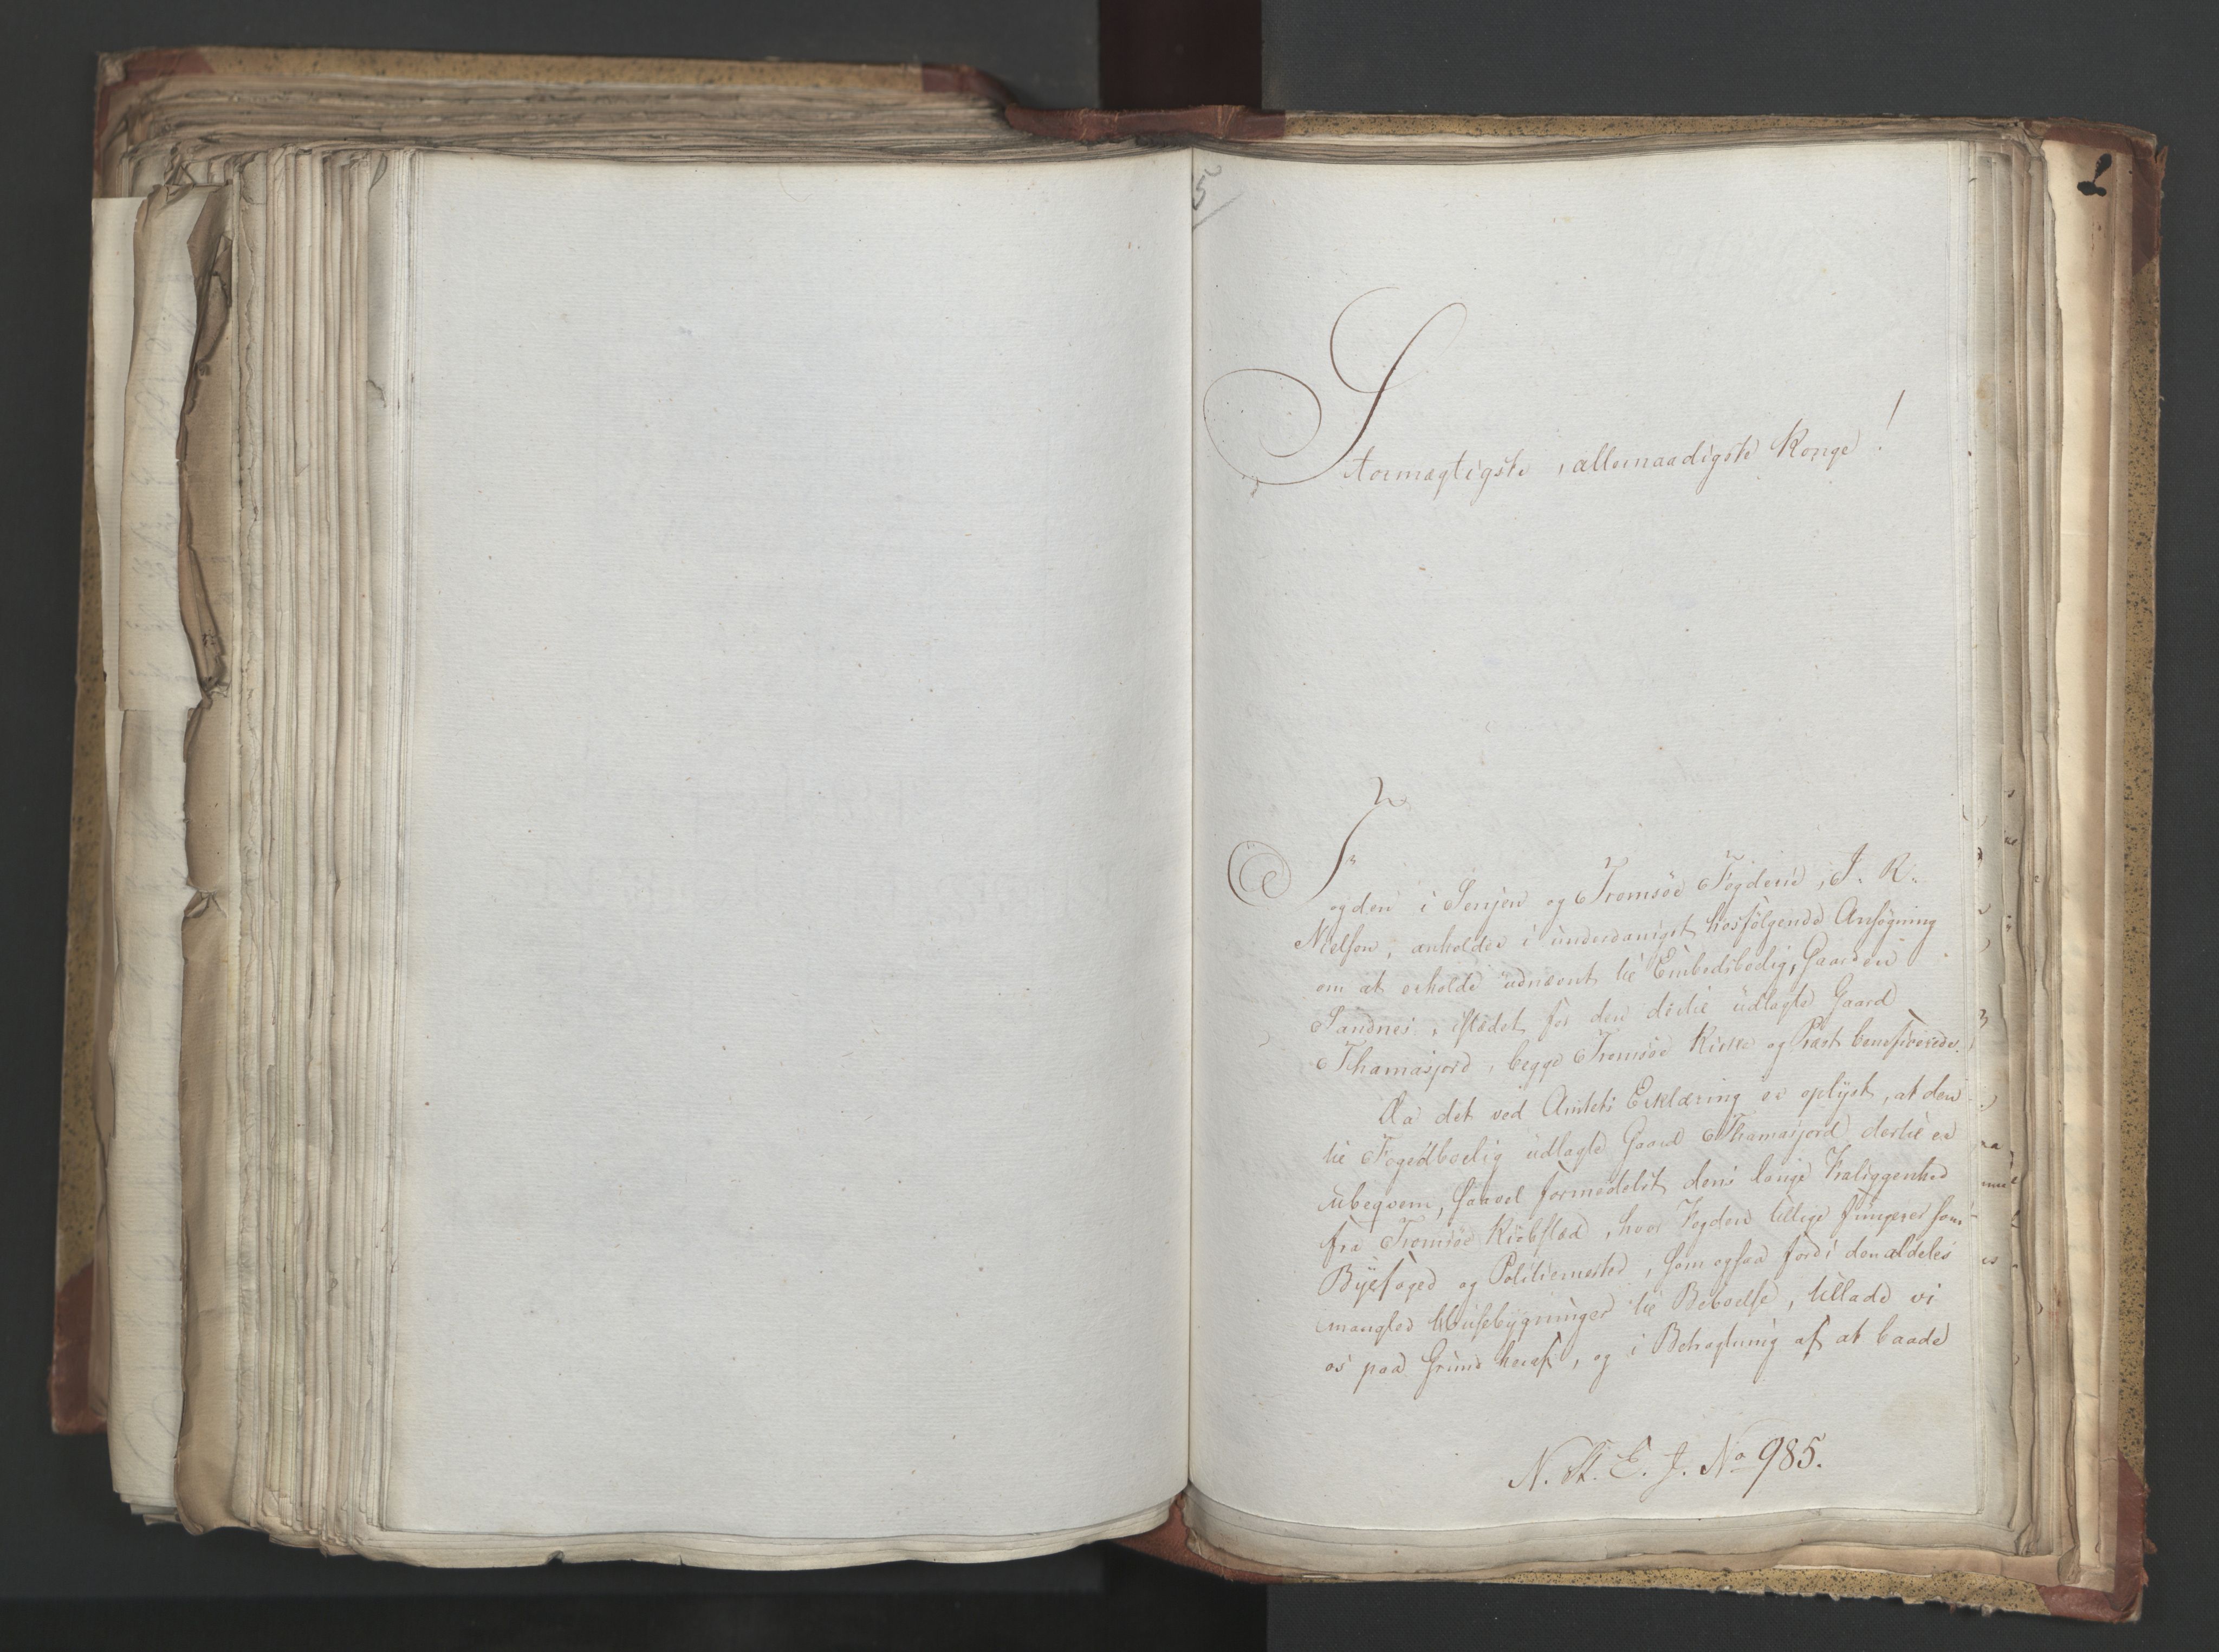 5
Stormægtigste, allernaadigste Konge!
Fogden i Senjen og Tromsøe Fogderie, J. R.
Nielsen, anholder i underdanigst hosfølgende Ansøgning
om at erholde udnævnt til Embedsbolig, Gaarden
Sandnes, istedet for den dertil udlagte Gaard
Thamasjord, begge Tromsöe Kirke og Præst beneficerede.
Da det ved Amtets Erklæring er oplyst, at den
til Fogedboelig udlagte Gaard Thamasjord dertil er
ubeqvem, saavel formedelst dens lange Fraliggenhed
fra Tromsöe Kiöbstæd, hvor Fogden tillige fungerer som
Byefoged og Politiemester, som ogsaa fordi den aldeles
mangler Huusebygninger til Beboelse, tillade vi
os paa Grund heraf, og i Betragtning af at baade
N. St. E. J. No 985.